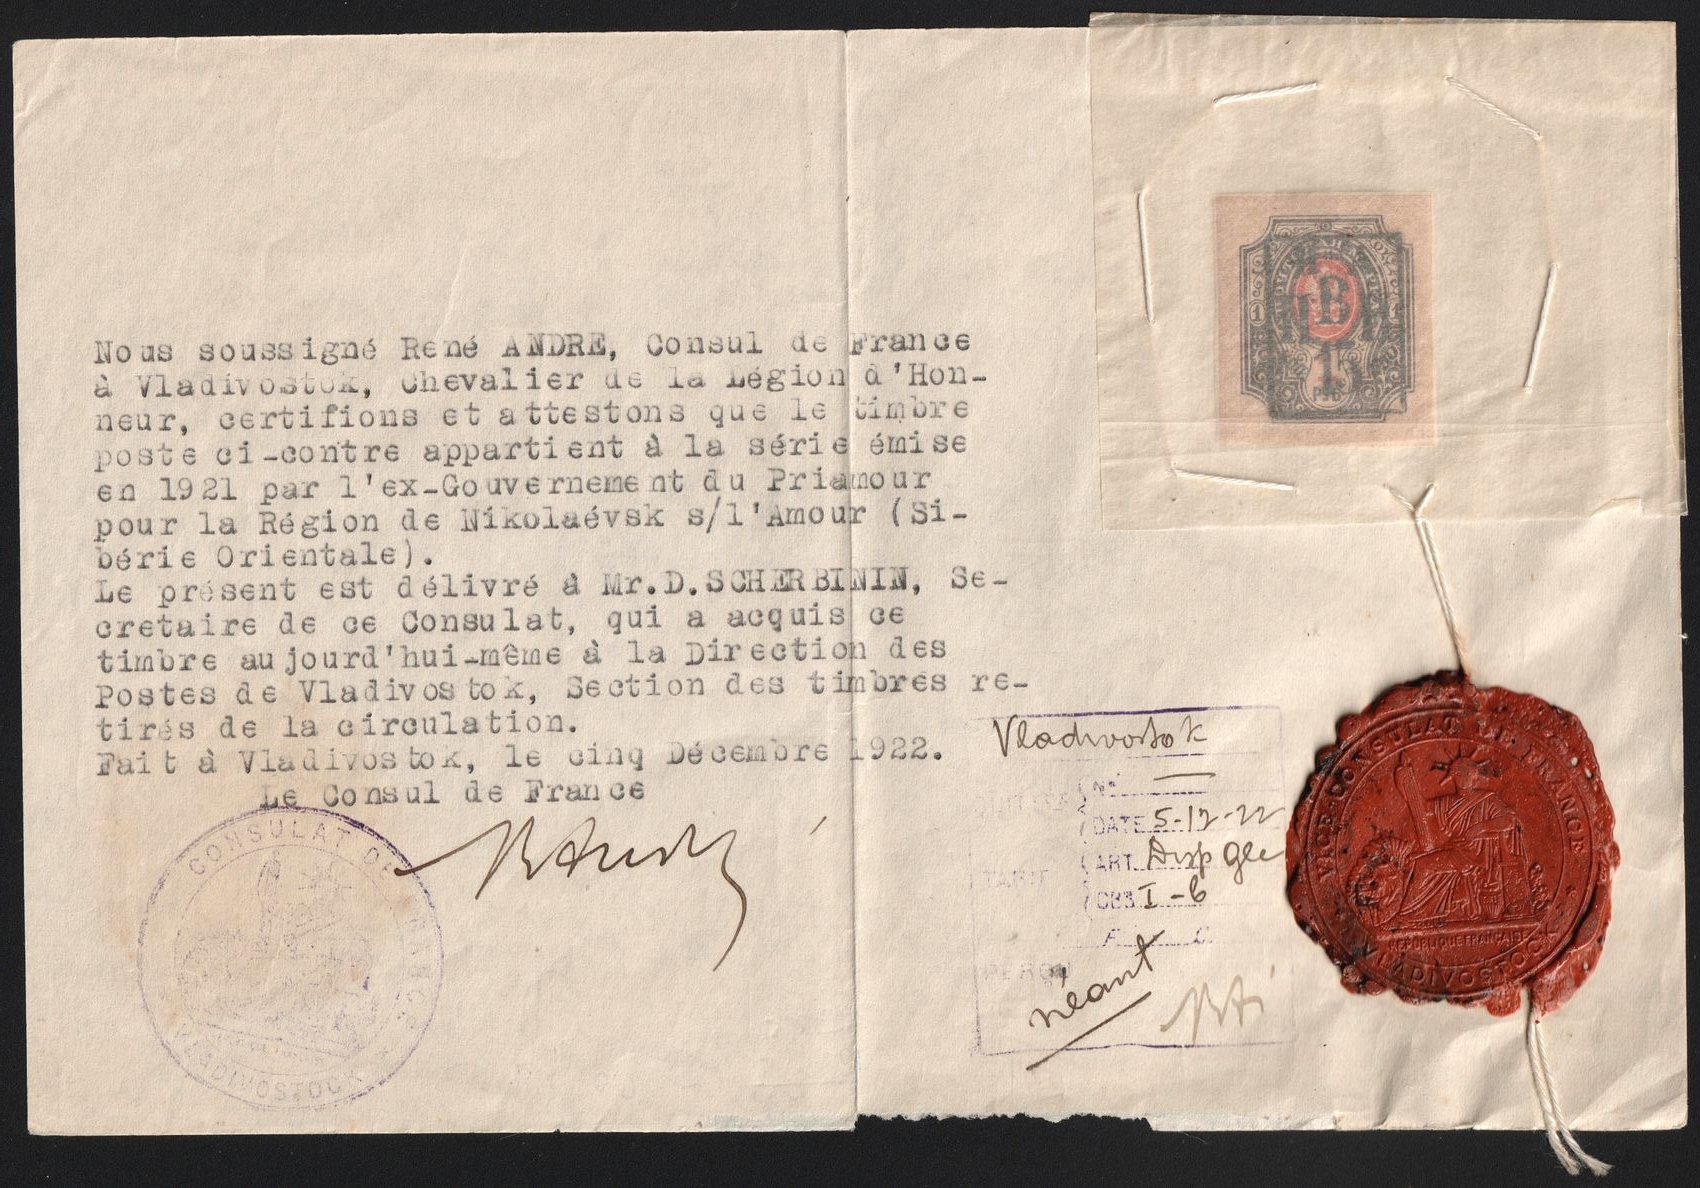 Nous soussigné René ANDRE, Consul de France
à Vladivostok, Chevalier de la Légion d'Hon-
neur, certifions et attestons que le timbre
poste ci-contre appartient à la série émise
en 1921 par l'ex-Gouvernement du Priamour
pour la Région de Nikolaévsk s/l'Amour (Si-
bérie Orientale).
Le présent est délivré à Mr.D.SCHERBININ, Se-
cretaire de ce Consulat, qui a acquis ce
timbre aujourd'hui-même à la Direction des
Postes de Vladivostok, Section des timbres re-
tirés de la circulation.
Fait à Vladivostok, le cinq Décembre 1922.
Le Consul de France
CONSULAT DE FRANCE
VLADIVOSTOCK
Vladivostok
N°
DATE 5-12-22
TARIF
ART. Disp Gle
OBS I-b
néant
1 1
В
15
VICE-CONSULAT DE FRANCE
REPUBLIQUE FRANCAISE
VLADIVOSTOCK